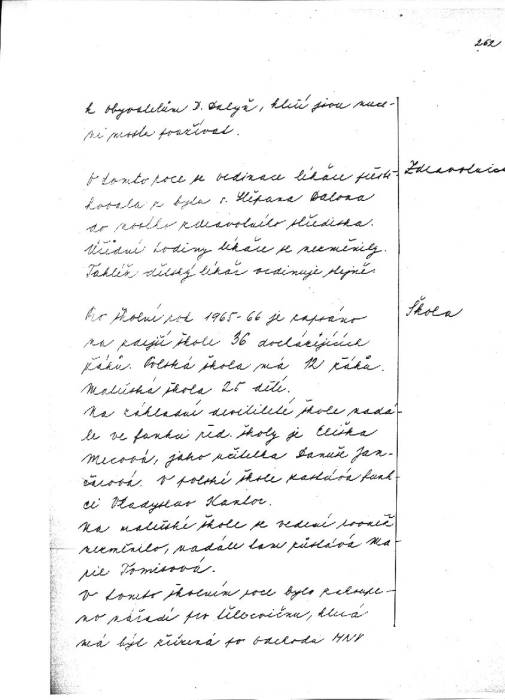 262
k obyvatelům D. Datyň, kteří jsou nuce-
ni moště používat.
V tomto roce se ordinace lékaře přestě-
hovala z bytu s. Štěpána Dalona
do nového zdravotního střediska.
Úřední hodiny lékaře se nezměnily.
Taktéž dětský lékař ordinuje stejně.
Zdravotnictví
Pro školní rok 1965-66 je zapsáno
na zdejší škole 36 docházejících
žáků. Polská škola má 12 žáků.
Mateřská škola 25 dětí.
Na základní devítileté škole nadá-
le ve funkci řed. školy je Eliška
Mecová, jako učitelka Danuše Jan-
čarová. V polské škole zastává funk-
ci Vladyslav Kantor.
Na mateřské škole se vedení rovněž
nezměnilo, nadále tam zůstává Ma-
rie Tomisová.
V tomto školním roce bylo zakoupe-
no nářadí pro tělocvičnu, která
má být zřízená po odchodu MNV
Škola